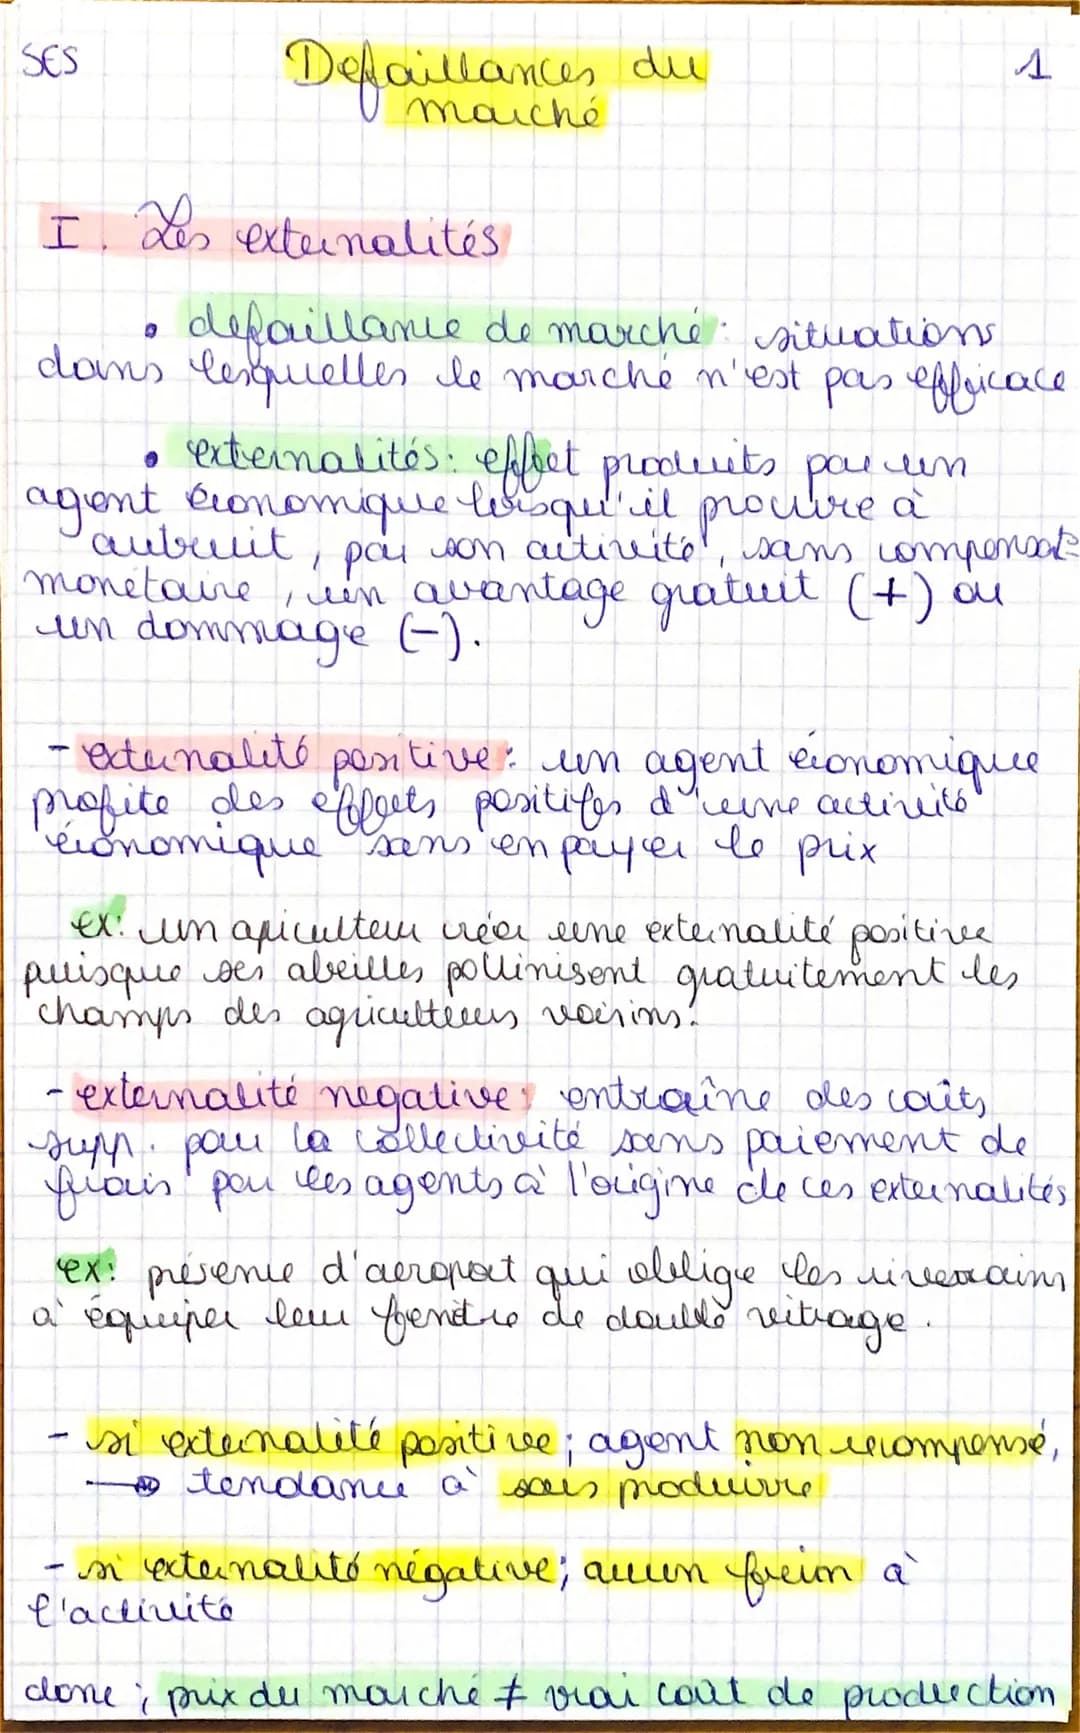 SES
Defaillances du
marché
1
I. Les externalités
• defaillance de marché : situations
dans lesquelles le marché n'est pas efficace
• externalités : effet produits par un
agent économique lorsqu'il procure à
autruit, par son activité, sans compensat°
monétaire, un avantage gratuit (+) ou
un dommage (-).
- externalité positive : un agent économique
profite des effets positifs d'une activité
économique sans en payer le prix
ex: un apiculteur créer une externalité positive
puisque ses abeilles pollinisent gratuitement les
champs des agriculteurs voisins.
- externalité negative : entraîne des coûts
supp. pour la collectivité sans paiement de
frais par les agents à l'origine de ces externalités
ex: présence d'aeroport qui oblige les riverains
à équiper leur fenêtre de double vitrage.
- si externalité positive ; agent non recompensé,
→ tendance à sous produire
- si externalité négative ; aucun frein à
l'activité
donc ; prix du marché ≠ vrai coût de production